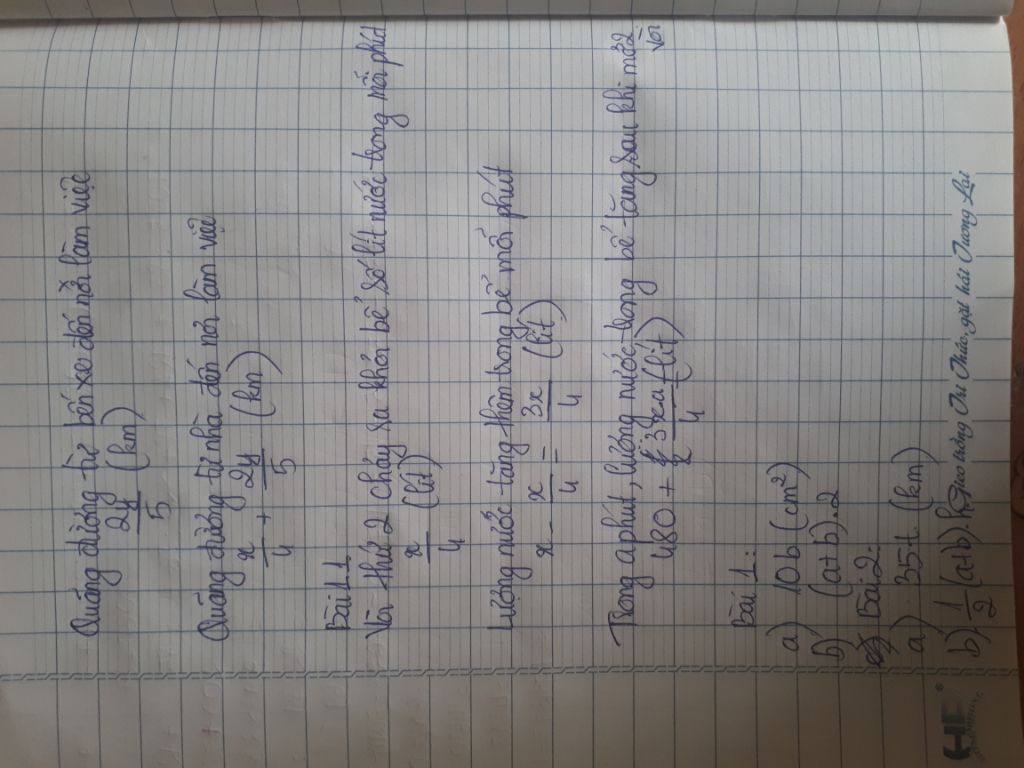 Quãng đường từ bến xe đến nơi làm việc
2y/5 (km)
Quãng đường từ nhà đến nơi làm việc
x/4 + 2y/5 (km)
Bài 11
Vòi thứ 2 chảy ra khỏi bể số lít nước trong mỗi phút
x/4 (lít)
Lượng nước tăng thêm trong bể mỗi phút
x - x/4 = 3x/4 (lít)
Trong a phút, lượng nước trong bể tăng sau khi mở 2
vòi
480 + 3xa/4 (lít)
Bài 1:
a) 10b (cm²)
b) (a+b).2
Bài 2:
a) 35t (km)
b) 1/2 (a+b).h
Giao thông Tri Thức, gặt hái Tương Lai